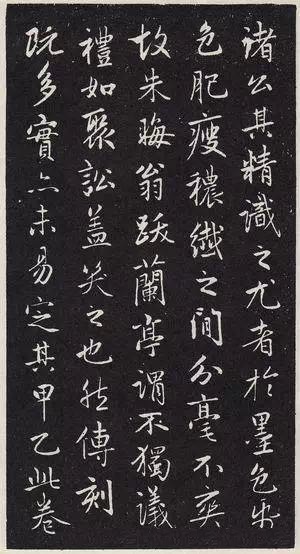 諸公其精識之尤者於墨色紙
色肥瘦穠纖之間分毫不爽
故朱晦翁跋蘭亭謂不獨議
禮如聚訟蓋笑之也然傳刻
既多實亦未易定其甲乙此卷